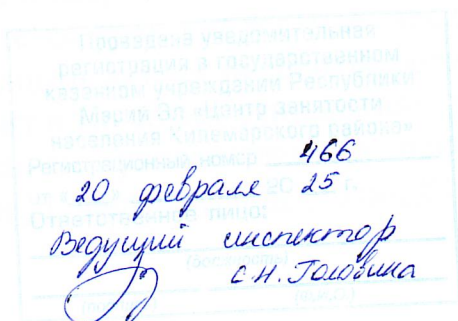 Проведена уведомительная
регистрация в государственном
казенном учреждении Республики
Марий Эл «Центр занятости
населения Килемарского района»
Регистрационный номер 466
20 февраля 2025 г.
Ответственное лицо:
Ведущий инспектор
(должность)
С.Н. Головина
(подпись)